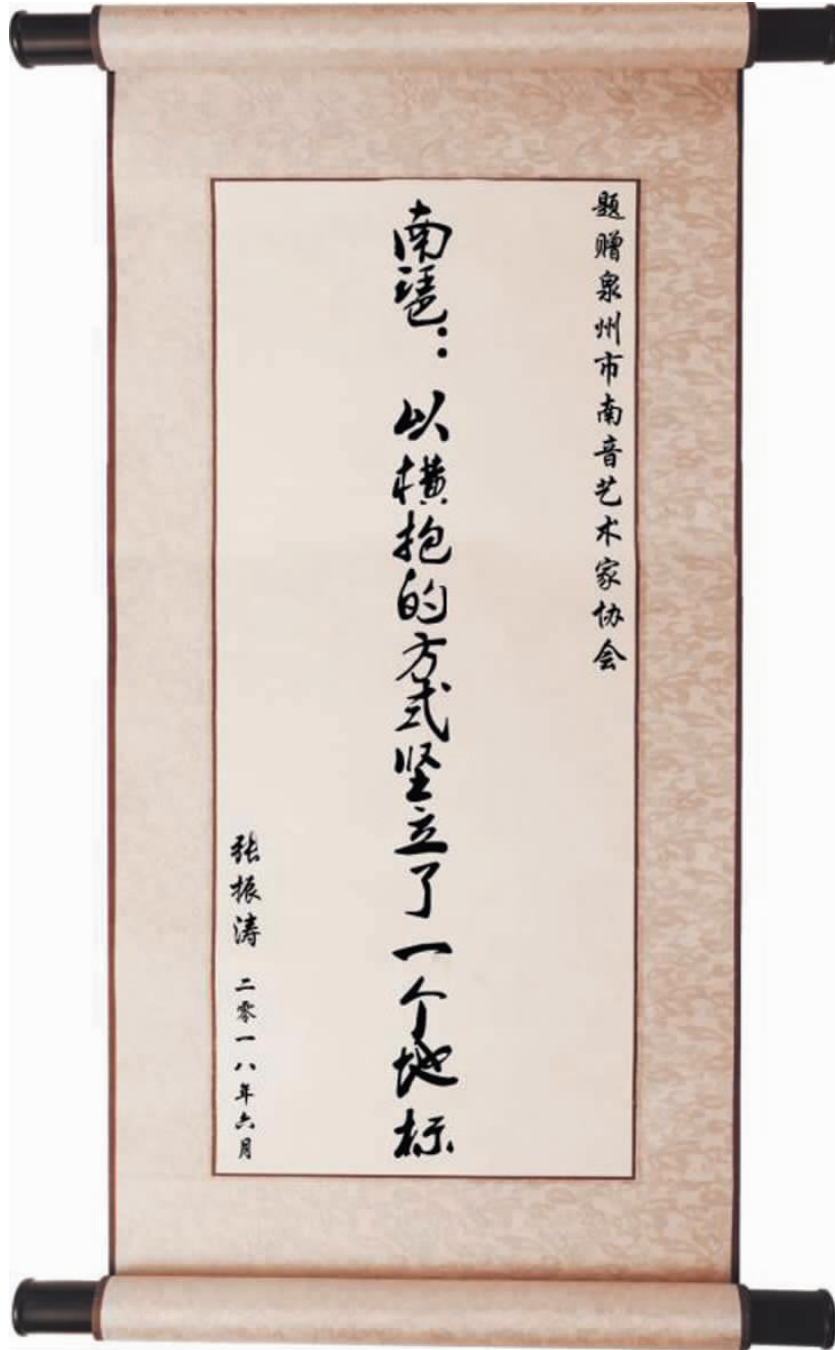 题赠泉州市南音艺术家协会
南琶：以横抱的方式竖立了一个地标
张振涛 二零一八年六月